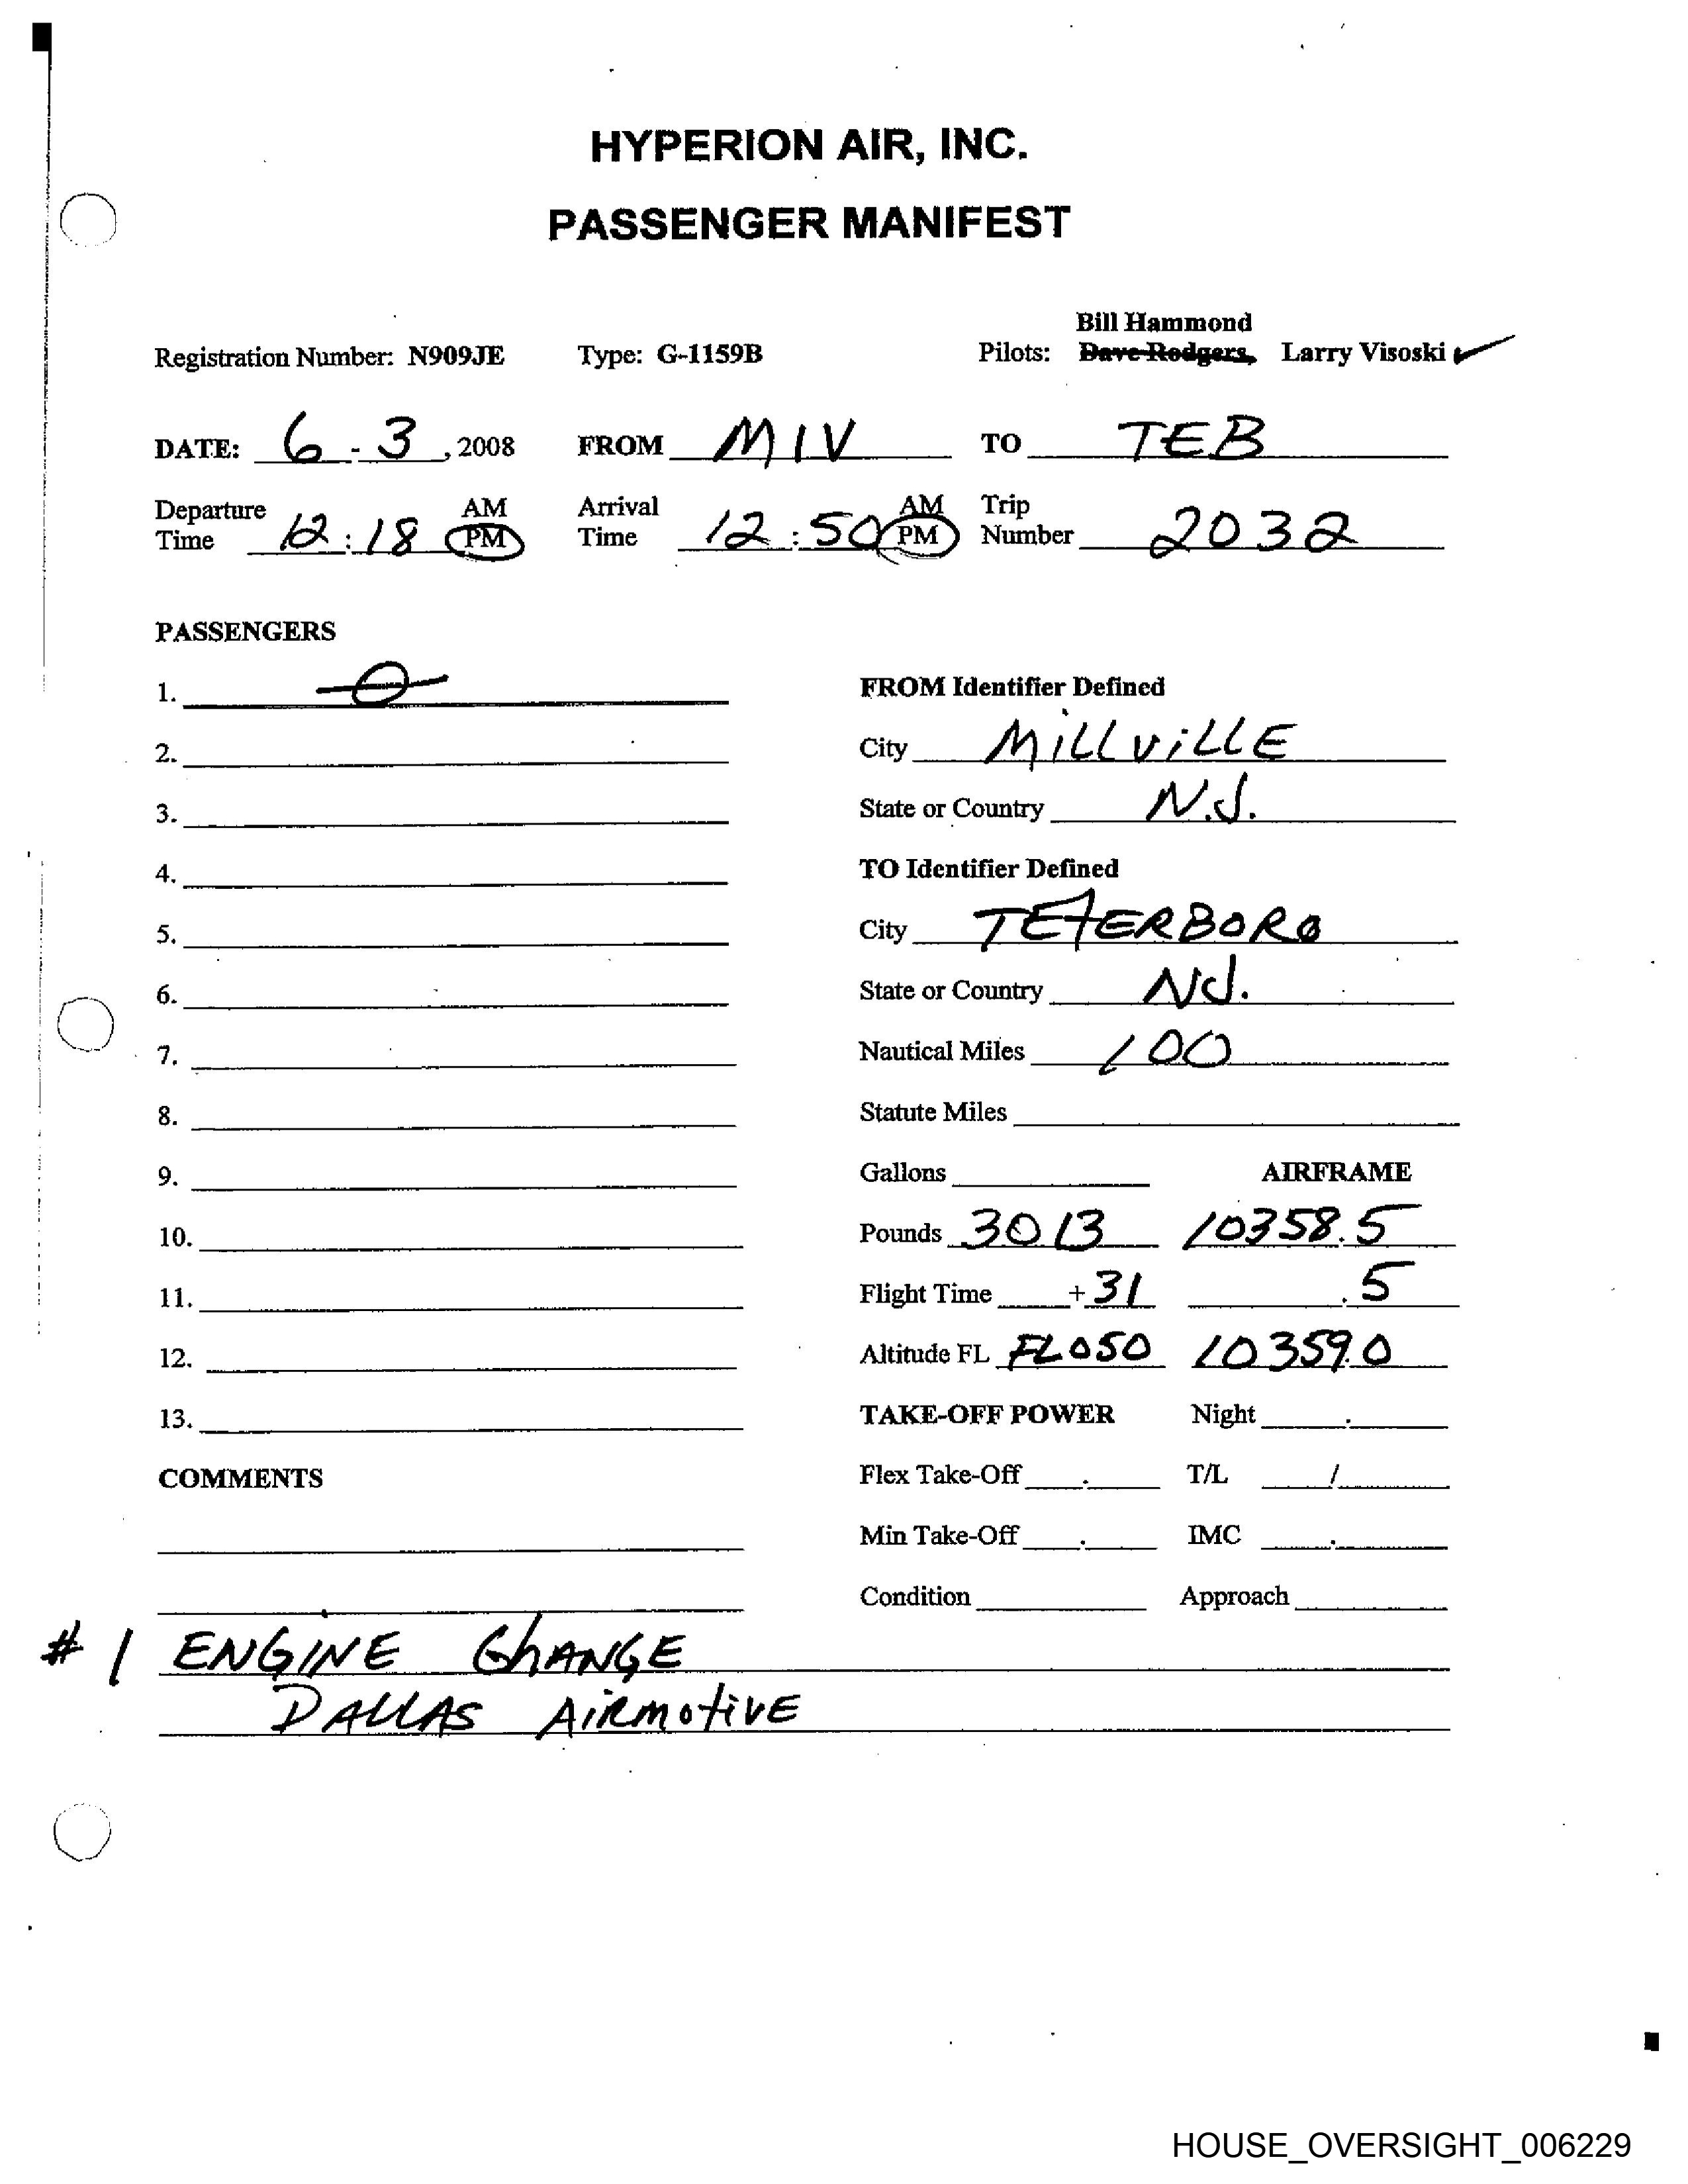 HYPERION AIR, INC.
PASSENGER MANIFEST
Bill Hammond
Registration Number: N909JE Type: G-1159B Pilots: Dave Rodgers, Larry Visoski ✓
DATE: 6 - 3, 2008 FROM MIV TO TEB
Departure AM Arrival AM Trip
Time 12:18 PM Time 12:50 PM Number 2032
PASSENGERS
1. 0
FROM Identifier Defined
2.
City MillvillE
3.
State or Country N.J.
4.
TO Identifier Defined
5.
City TETERBORO
6.
State or Country NJ.
7.
Nautical Miles 100
8.
Statute Miles
9.
Gallons AIRFRAME
10.
Pounds 3013 10358.5
11.
Flight Time +31 .5
12.
Altitude FL FL050 10359.0
13.
TAKE-OFF POWER Night .
COMMENTS
Flex Take-Off . T/L /
Min Take-Off . IMC .
Condition Approach
# 1 ENGINE ChANGE
DALLAS AiRmotivE
HOUSE_OVERSIGHT_006229